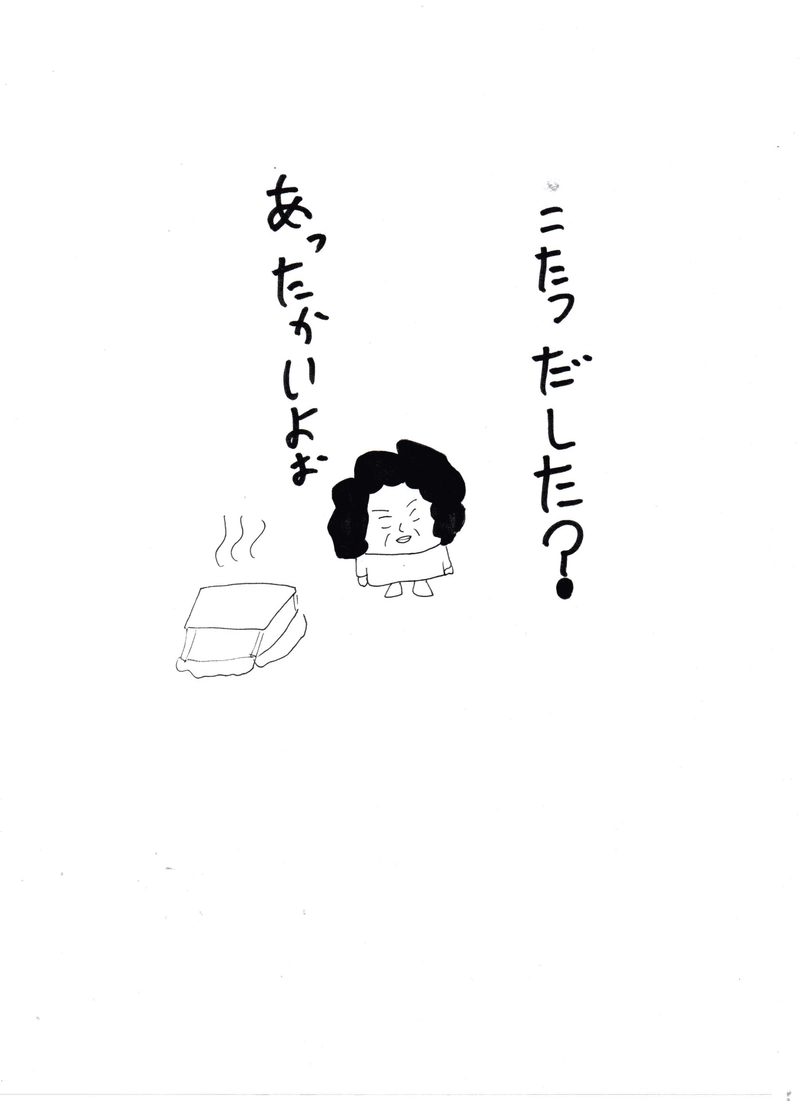 こたつ だした?
あったかいよぉ